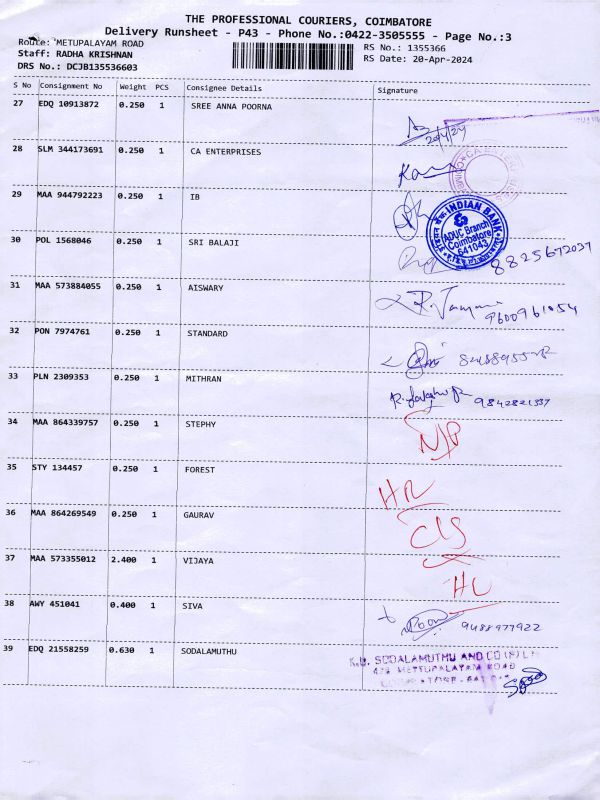 THE PROFESSIONAL COURIERS, COIMBATORE
Delivery Runsheet - P43 - Phone No.:0422-3505555 - Page No.:3
Route: METUPALAYAM ROAD
Staff: RADHA KRISHNAN
DRS No.: DCJB135536603
RS No.: 1355366
RS Date: 20-Apr-2024
S No Consignment No Weight PCS Consignee Details Signature
27 EDQ 10913872 0.250 1 SREE ANNA POORNA
20/4/24
28 SLM 344173691 0.250 1 CA ENTERPRISES
29 MAA 944792223 0.250 1 IB
INDIAN BANK
ADUC Branch
Coimbatore
641043
30 POL 1568046 0.250 1 SRI BALAJI
8825672037
31 MAA 573884055 0.250 1 AISWARY
9600961054
32 PON 7974761 0.250 1 STANDARD
33 PLN 2309353 0.250 1 MITHRAN
9842821337
34 MAA 864339757 0.250 1 STEPHY
N/P
35 STY 134457 0.250 1 FOREST
36 MAA 864269549 0.250 1 GAURAV
C/S
37 MAA 573355012 2.400 1 VIJAYA
38 AWY 451041 0.400 1 SIVA
9488977922
39 EDQ 21558259 0.630 1 SODALAMUTHU
SODALAMUTHU AND CO (P) LT
METTUPALAYAM ROAD